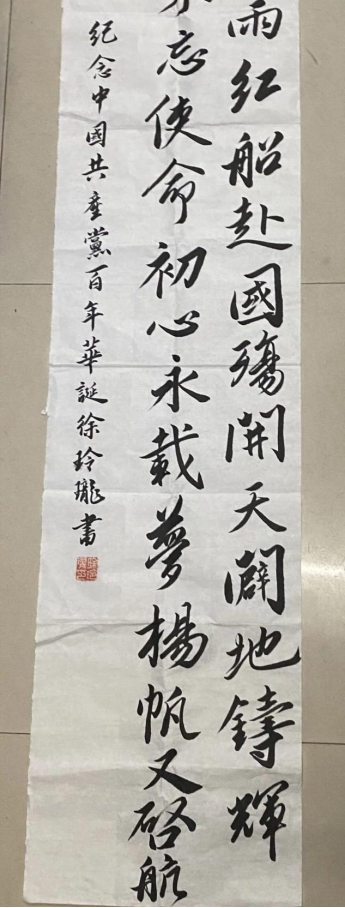 雨红船赴國殤開天闢地鑄輝
忘使命初心永载夢楊帆又啓航
纪念中國共產黨百年華誕徐玲瓏書